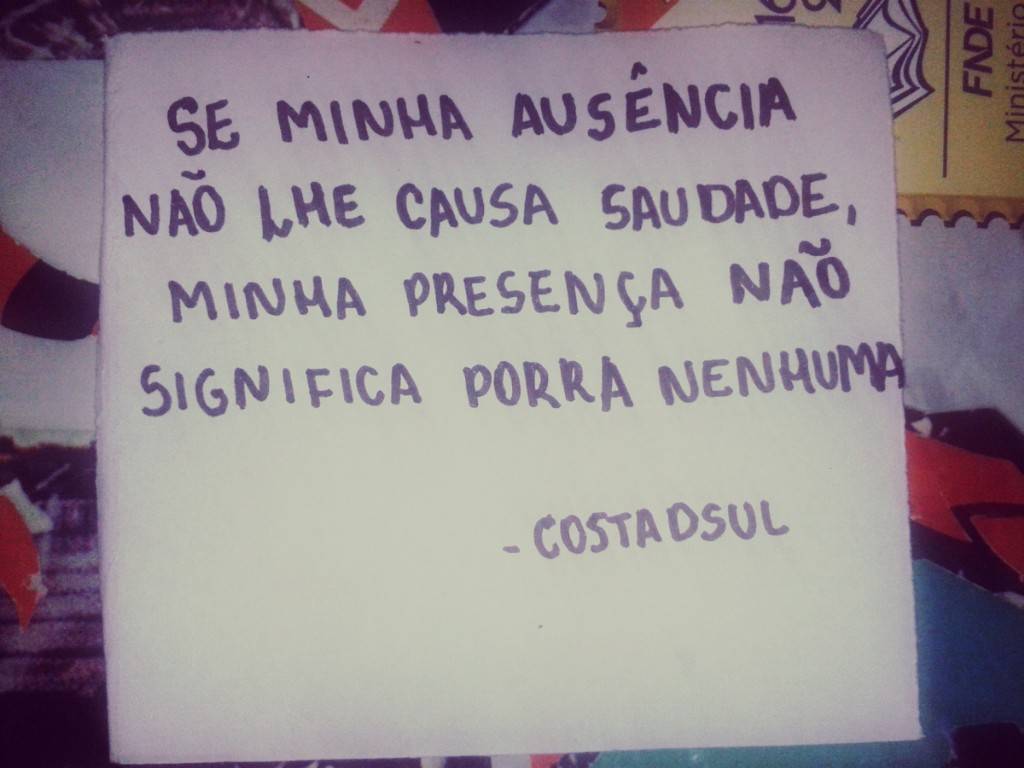 SE MINHA AUSÊNCIA
NÃO LHE CAUSA SAUDADE,
MINHA PRESENÇA NÃO
SIGNIFICA PORRA NENHUMA
- COSTADSUL
FNDE
Ministério